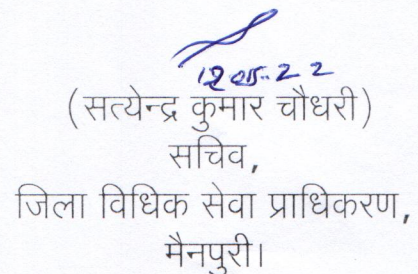 12.05.22
(सत्येन्द्र कुमार चौधरी)
सचिव,
जिला विधिक सेवा प्राधिकरण,
मैनपुरी।